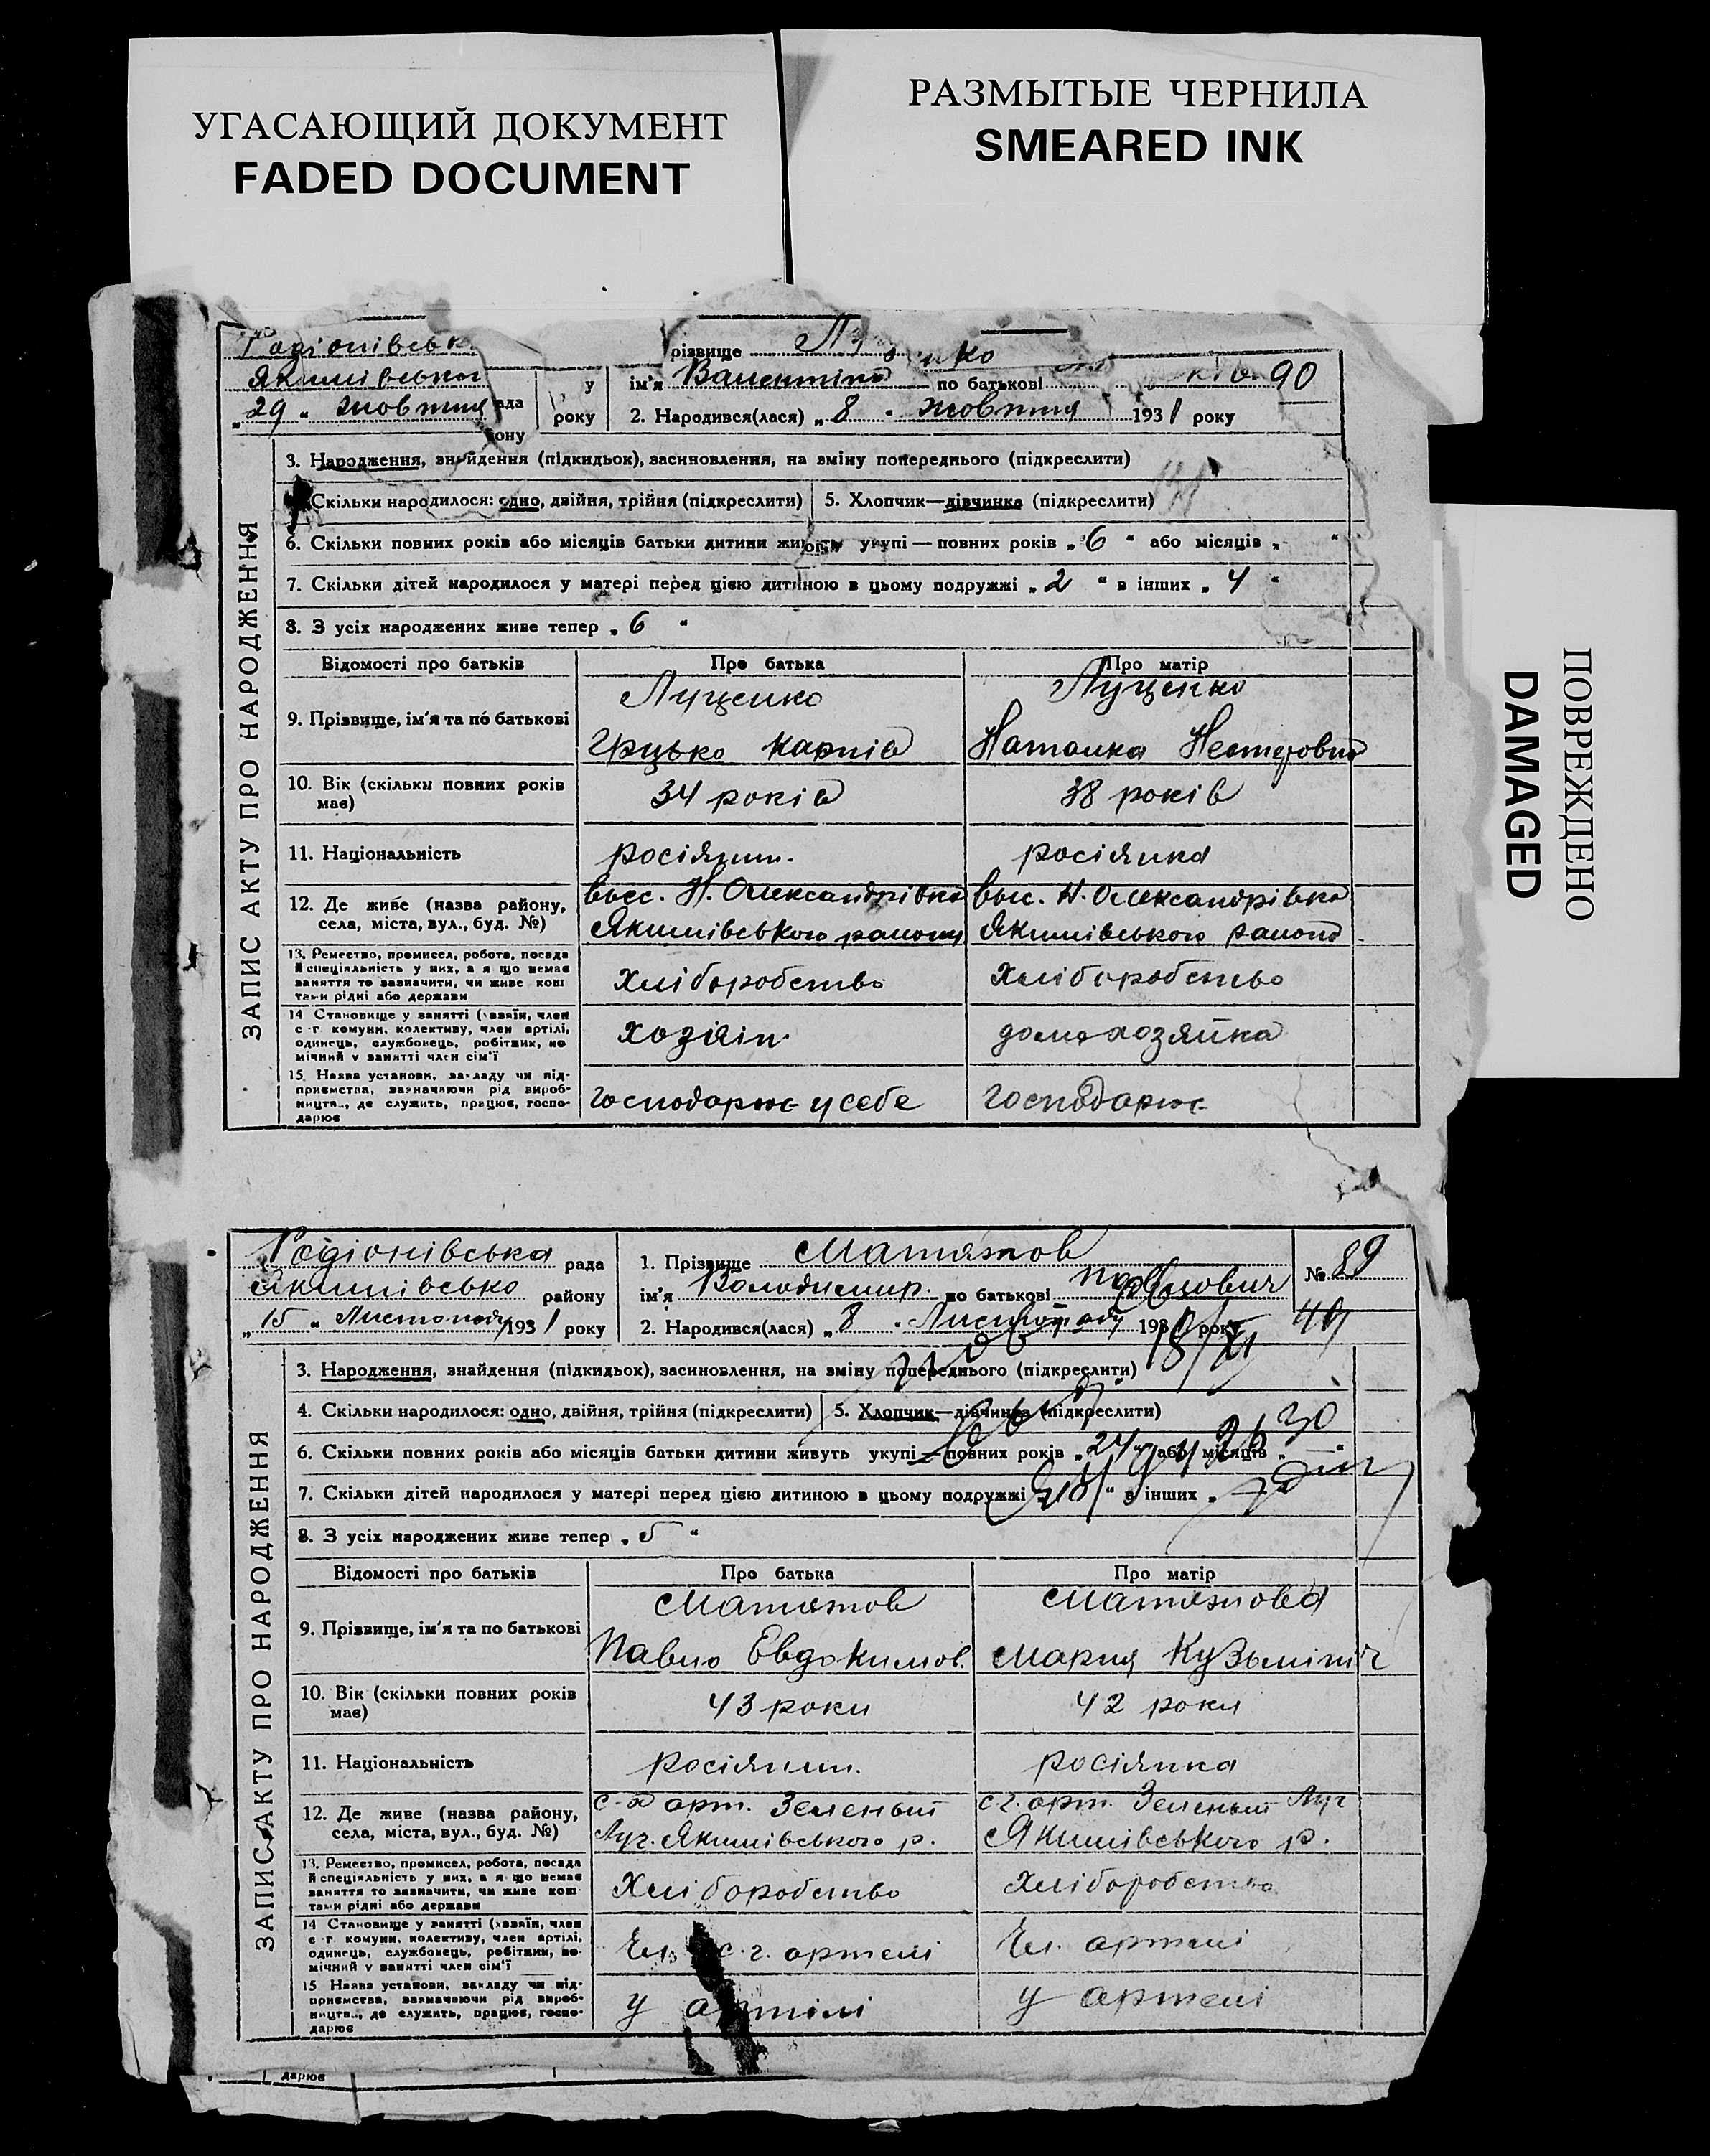 УГАСАЮЩИЙ ДОКУМЕНТ
FADED DOCUMENT
РАЗМЫТЫЕ ЧЕРНИЛА
SMEARED INK
ПОВРЕЖДЕНО
DAMAGED
ЗАПИС АКТУ ПРО НАРОДЖЕННЯ
Радіонівськ
різвище
Якимівськог у ім'я Валентина по батькові 90
„29" жовтня року 2. Народився(лася) „8" жовтня 1931 року
3. Народження, знайдення (підкидьок), засиновлення, на зміну попереднього (підкреслити)
Скільки народилося: одно, двійня, трійня (підкреслити) 5. Хлопчик—дівчинка (підкреслити)
6. Скільки повних років або місяців батьки дитини живуть укупі — повних років „6" або місяців „ "
7. Скільки дітей народилося у матері перед цією дитиною в цьому подружжі „2" в інших „4"
8. З усіх народжених живе тепер „6"
Відомості про батьків Про батька Про матір
9. Прізвище, ім'я та по батькові Луценко Луценко
Грцько Карпів Наталка Нестеровна
10. Вік (скільки повних років має) 34 років 38 років
11. Національність росіянин. росіянка
12. Де живе (назва району, села, міста, вул., буд. №) высс. Н. Олександрівка выс. Н. Олександрівка
Якимівського району Якимівського району
13. Ремество, промисел, робота, посада й спеціяльність у них, а якщо немає заняття то зазначити, чи живе коштами рідні або держави Хліборобство Хліборобство
14 Становище у занятті (хазяїн, член с.-г. комуни, колективу, член артілі, одинець, службовець, робітник, помічний у занятті член сім'ї хозяін домохозяйка
15. Назва установи, закладу чи підприємства, зазначаючи рід виробництв., де служить, працює, господарює господарює у себе господарює
ЗАПИС АКТУ ПРО НАРОДЖЕННЯ
Радіонівська рада 1. Прізвище Матяжов № 89
Якимівсько району ім'я Володимир по батькові Павлович
„15" Листопаду 1931 року 2. Народився(лася) „8" Листопаду 1931 року
3. Народження, знайдення (підкидьок), засиновлення, на зміну попереднього (підкреслити)
4. Скільки народилося: одно, двійня, трійня (підкреслити) 5. Хлопчик—дівчинка (підкреслити)
6. Скільки повних років або місяців батьки дитини живуть укупі — повних років „24" або місяців „—"
7. Скільки дітей народилося у матері перед цією дитиною в цьому подружжі в інших „
8. З усіх народжених живе тепер „5"
Відомості про батьків Про батька Про матір
9. Прізвище, ім'я та по батькові Матяжов Матяжова
Павло Евдокимов. Мария Кузьминіч
10. Вік (скільки повних років має) 43 роки 42 роки
11. Національність росіянин. росіянка
12. Де живе (назва району, села, міста, вул., буд. №) с-г арт. Зеленый с.г. арт. Зеленый Луг
Луг. Якимівського р. Якимівського р.
13. Ремество, промисел, робота, посада й спеціяльність у них, а якщо немає заняття то зазначити, чи живе коштами рідні або держави Хліборобство Хліборобство
14 Становище у занятті (хазяїн, член с.-г. комуни, колективу, член артілі, одинець, службовець, робітник, помічний у занятті член сім'ї Чл. с.г. артелі Чл. артелі
15 Назва установи, закладу чи підприємства, зазначаючи рід виробництв., де служить, працює, господарює у артілі у артелі
дарює